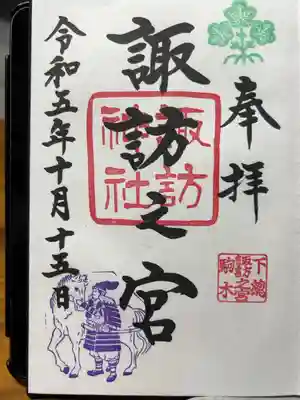 奉拝
諏訪之宮
諏訪
神社
令和五年十月十五日
下總
駒木